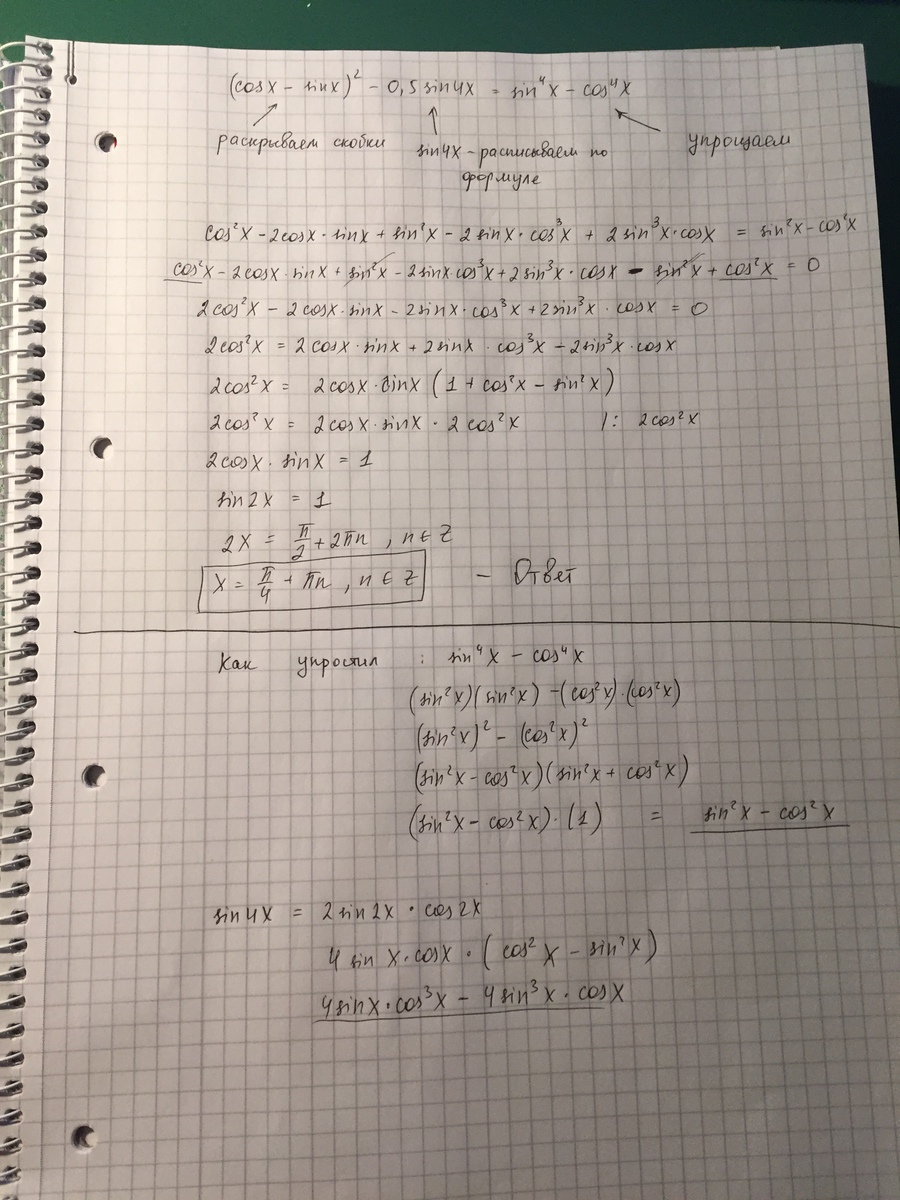 (cosx - sinx)² - 0,5 sin4x = sin⁴x - cos⁴x
раскрываем скобки
sin4x - расписываем по
формуле
упрощаем
cos²x - 2cosx · sinx + sin²x - 2sinx · cos³x + 2sin³x · cosx = sin²x - cos²x
cos²x - 2cosx · sinx + sin²x - 2sinx · cos³x + 2sin³x · cosx - sin²x + cos²x = 0
2cos²x - 2cosx · sinx - 2sinx · cos³x + 2sin³x · cosx = 0
2cos²x = 2cosx · sinx + 2sinx · cos³x - 2sin³x · cosx
2cos²x = 2cosx · sinx (1 + cos²x - sin²x)
2cos²x = 2cosx · sinx · 2cos²x /: 2cos²x
2cosx · sinx = 1
sin2x = 1
2x = π/2 + 2πn , n ∈ Z
x = π/4 + πn , n ∈ Z - Ответ
Как упростил : sin⁴x - cos⁴x
(sin²x)(sin²x) - (cos²x) · (cos²x)
(sin²x)² - (cos²x)²
(sin²x - cos²x)(sin²x + cos²x)
(sin²x - cos²x) · (1) = sin²x - cos²x
sin4x = 2sin2x · cos2x
4sinx · cosx · (cos²x - sin²x)
4sinx · cos³x - 4sin³x · cosx